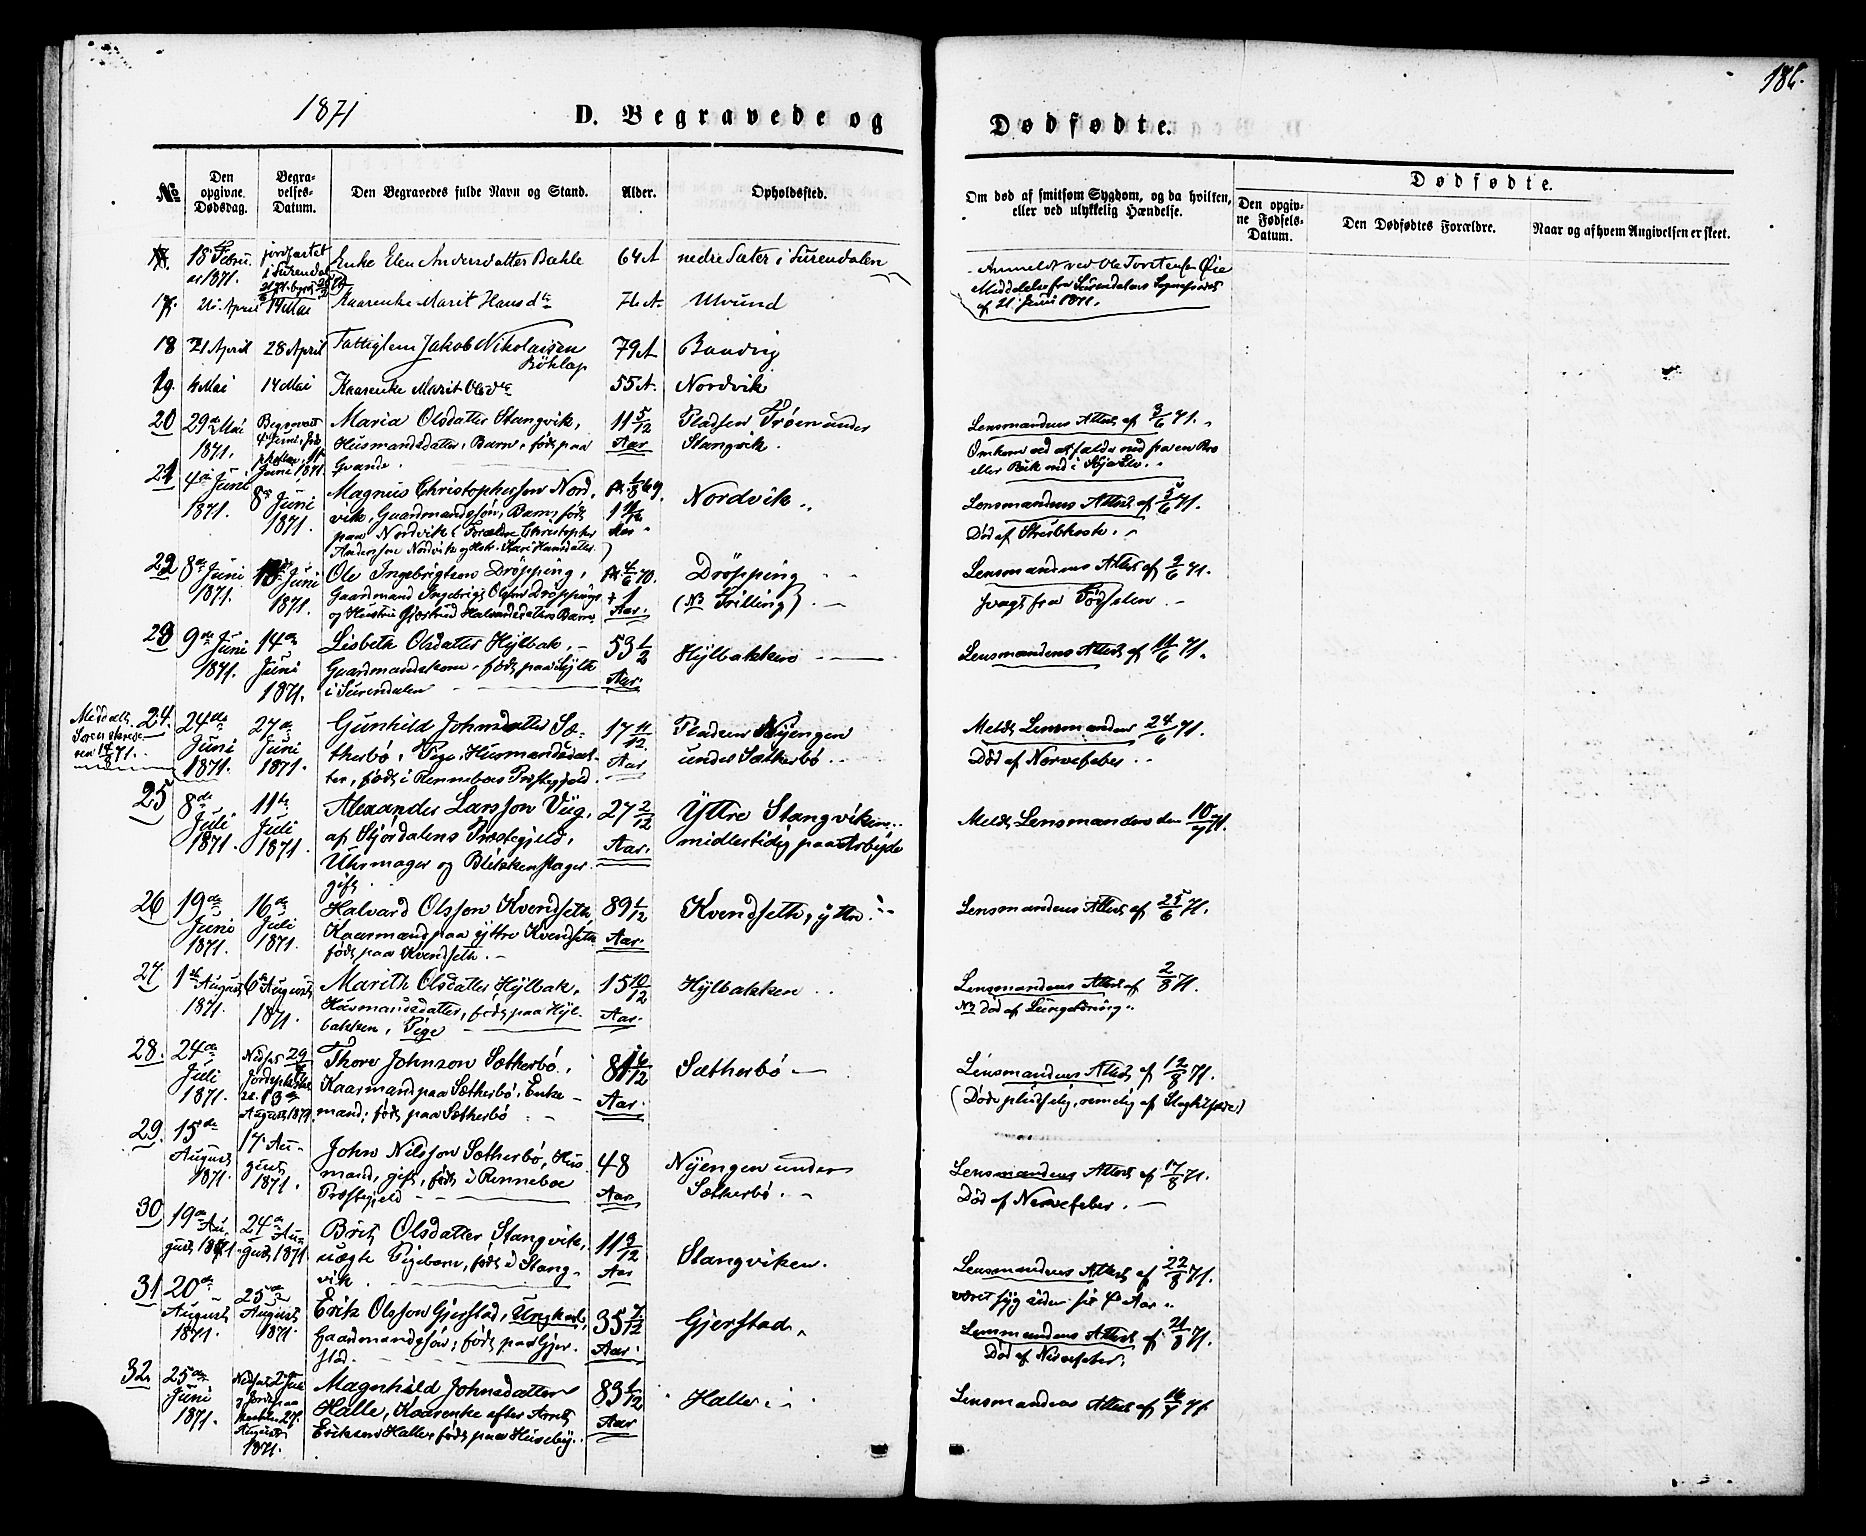 1871
D. Begravede og
Dødfødte.
No
Den opgivne Dødsdag.
Begravelses-Datum.
Den Begravedes fulde Navn og Stand.
Alder.
Opholdssted.
Om død af smitsom Sygdom, og da hvilken, eller ved ulykkelig Hændelse.
Dødfødte.
Den opgivne Fødsels-Datum.
Den Dødfødtes Forældre.
Naar og af hvem Angivelsen er skeet.
18 Febru. 1871. jordfæstet i Surendal Enke Elen Andersdatter Bakle 64 A nedre Sæter i Surendalen
Anmeldt ved Ole Torstensen Øie
Meddelelse fra Surendalens Sognepræst
af 21 Juni 1871.
17. April 14 Mai Kaarenke Marit Hansdr Ulvund
18 21 April 28 April Fattiglem Jakob Nikolaisen 79 A Baadvig
19. 4 Mai 14 Mai Kaarenke Marit Olsdr 55 A. Nordvik
20 29de Mai 1871. Begravet 4 Juni, 11 Juni 1871 Maria Olsdatter Stangvik, 11 5/12 Aar Pladsen Trøen under Stangvik.
Husmandsdatter, Barn, født paa
Grande.
Lensmandens Attest af 3/6 71.
Omkom ved at falde ned fra en Bro
eller Bæk ned i
21 4de Juni 1871. 8de Juni 1871. Magnus Christophersson Nord- Nordvik
vik, Gaardmandssøn, Barn, født
paa Nordvik. Forældre Christopher
Anderssen Nordvik og Kari Hansdatter.
Lensmandens Attest af 5/6 71.
Død af Strubehoste.
22 8de Juni 1871. Juni 1871. Ole Ingebrigtsen Drøpping, 1 Aar. Drøpping
Gaardmand Ingebrigt Olsen Drøppings (NB Trilling).
og Hustru Gjertrud Halvardsdatters Barn.
Lensmandens Attest af 9/6 71.
svagt fra Fødselen.
23 9de Juni 1871. 14de Juni 1871. Lisbeth Olsdatter Hylbak, 53 1/2 Aar. Hylbakken
Gaardmandskone, født paa Hylth
i Surendalen
Lensmandens Attest af 11/6 71.
24. 24de Juni 1871. 27de Juni 1871. Gunhild Johnsdatter Sæ- 17 11/12 Aar Pladsen Nyengen
therbø, Pige, Husmandsdat- under Sætherbø.
ter, født i Renneboes Præstegjeld.
Meldt Lensmanden 24/6 71.
Død af Nervefeber.
25 8de Juli 1871. 11te Juli 1871. Alexander Larsson Viig, 27 2/12 Aar. Yttre Stangviken
af Stjørdalens Præstegjeld, midlertidig paa Arbeide
Uhrmager og Blikkenslager.
gift.
Meldt Lensmanden den 10/7 71.
26 19de Juni 1871. 16de Juli 1871. Halvard Olsson Kvendseth 89 1/12 Aar. Kvendseth, yttre
Kaarmand paa yttre Kvendseth
født paa Kvendseth.
Lensmandens Attest af 25/6 71.
27. 1ste August 1871. 6te August 1871. Marith Olsdatter Hylbak, 15 10/12 Aar. Hylbakken
Husmandsdatter, født paa Hyl-
bakken, Pige
Lensmandens Attest af 2/8 71.
NB død af Lungetæring
28. 24de Juli 1871. Nedsat 29 August 1871. Thore Johnson Sætherbø, 81 Aar. Sætherbø
Kaarmand paa Sætherbø, Enke-
mand, født paa Sætherbø
Lensmandens Attest af 12/8 71.
(Døde pludselig, nemlig af Slagtilfælde)
29. 15de August 1871. 17. August 1871. John Nilsson Sætherbø, Hus- 48 Aar Nyengen under
mand, gift, født i Renneboe Sætherbø.
Præstegjeld
Lensmandens Attest af 17/8 71.
Død af Nervefeber.
30 19de August 1871. 24de August 1871 Brit Olsdatter Stangvik, 11 9/12 Aar Stangviken.
uægte Pigebarn, født i Stang-
vik.
Lensmandens Attest af 22/8 71.
været syg siden sit Aar.
31 20de August 1871. 25de August 1871. Erik Olsson Gjerstad, Ungkarl, 35 7/12 Aar. Gjerstad
Gaardmandssøn, født paa Gjer-
stad.
Lensmandens Attest af 21/8 71.
Død af Nervefeber.
32. 25de Juni 1871. Nedsat 2 Juli August 1871. Magnhild Johnsdatter 83 1/12 Aar Halle
Halle, Kaarenke efter Arnt
Eriksen Halle, født paa Huseby.
Lensmandens Attest af 16/7 71.